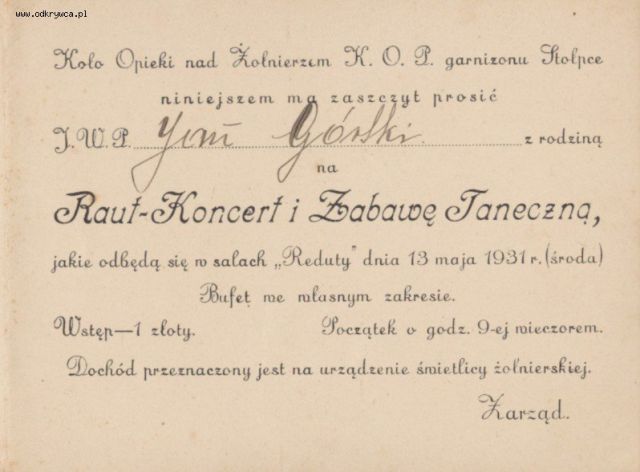 www.odkrywca.pl
Koło Opieki nad Żołnierzem K. O. P. garnizonu Stołpce
niniejszem ma zaszczyt prosić
J. W. P. Górski z rodziną
na
Raut-Koncert i Zabawę Taneczną,
jakie odbędą się w salach „Reduty" dnia 13 maja 1931 r. (środa)
Bufet we własnym zakresie.
Wstęp—1 złoty. Początek o godz. 9-ej wieczorem.
Dochód przeznaczony jest na urządzenie świetlicy żołnierskiej.
Zarząd.